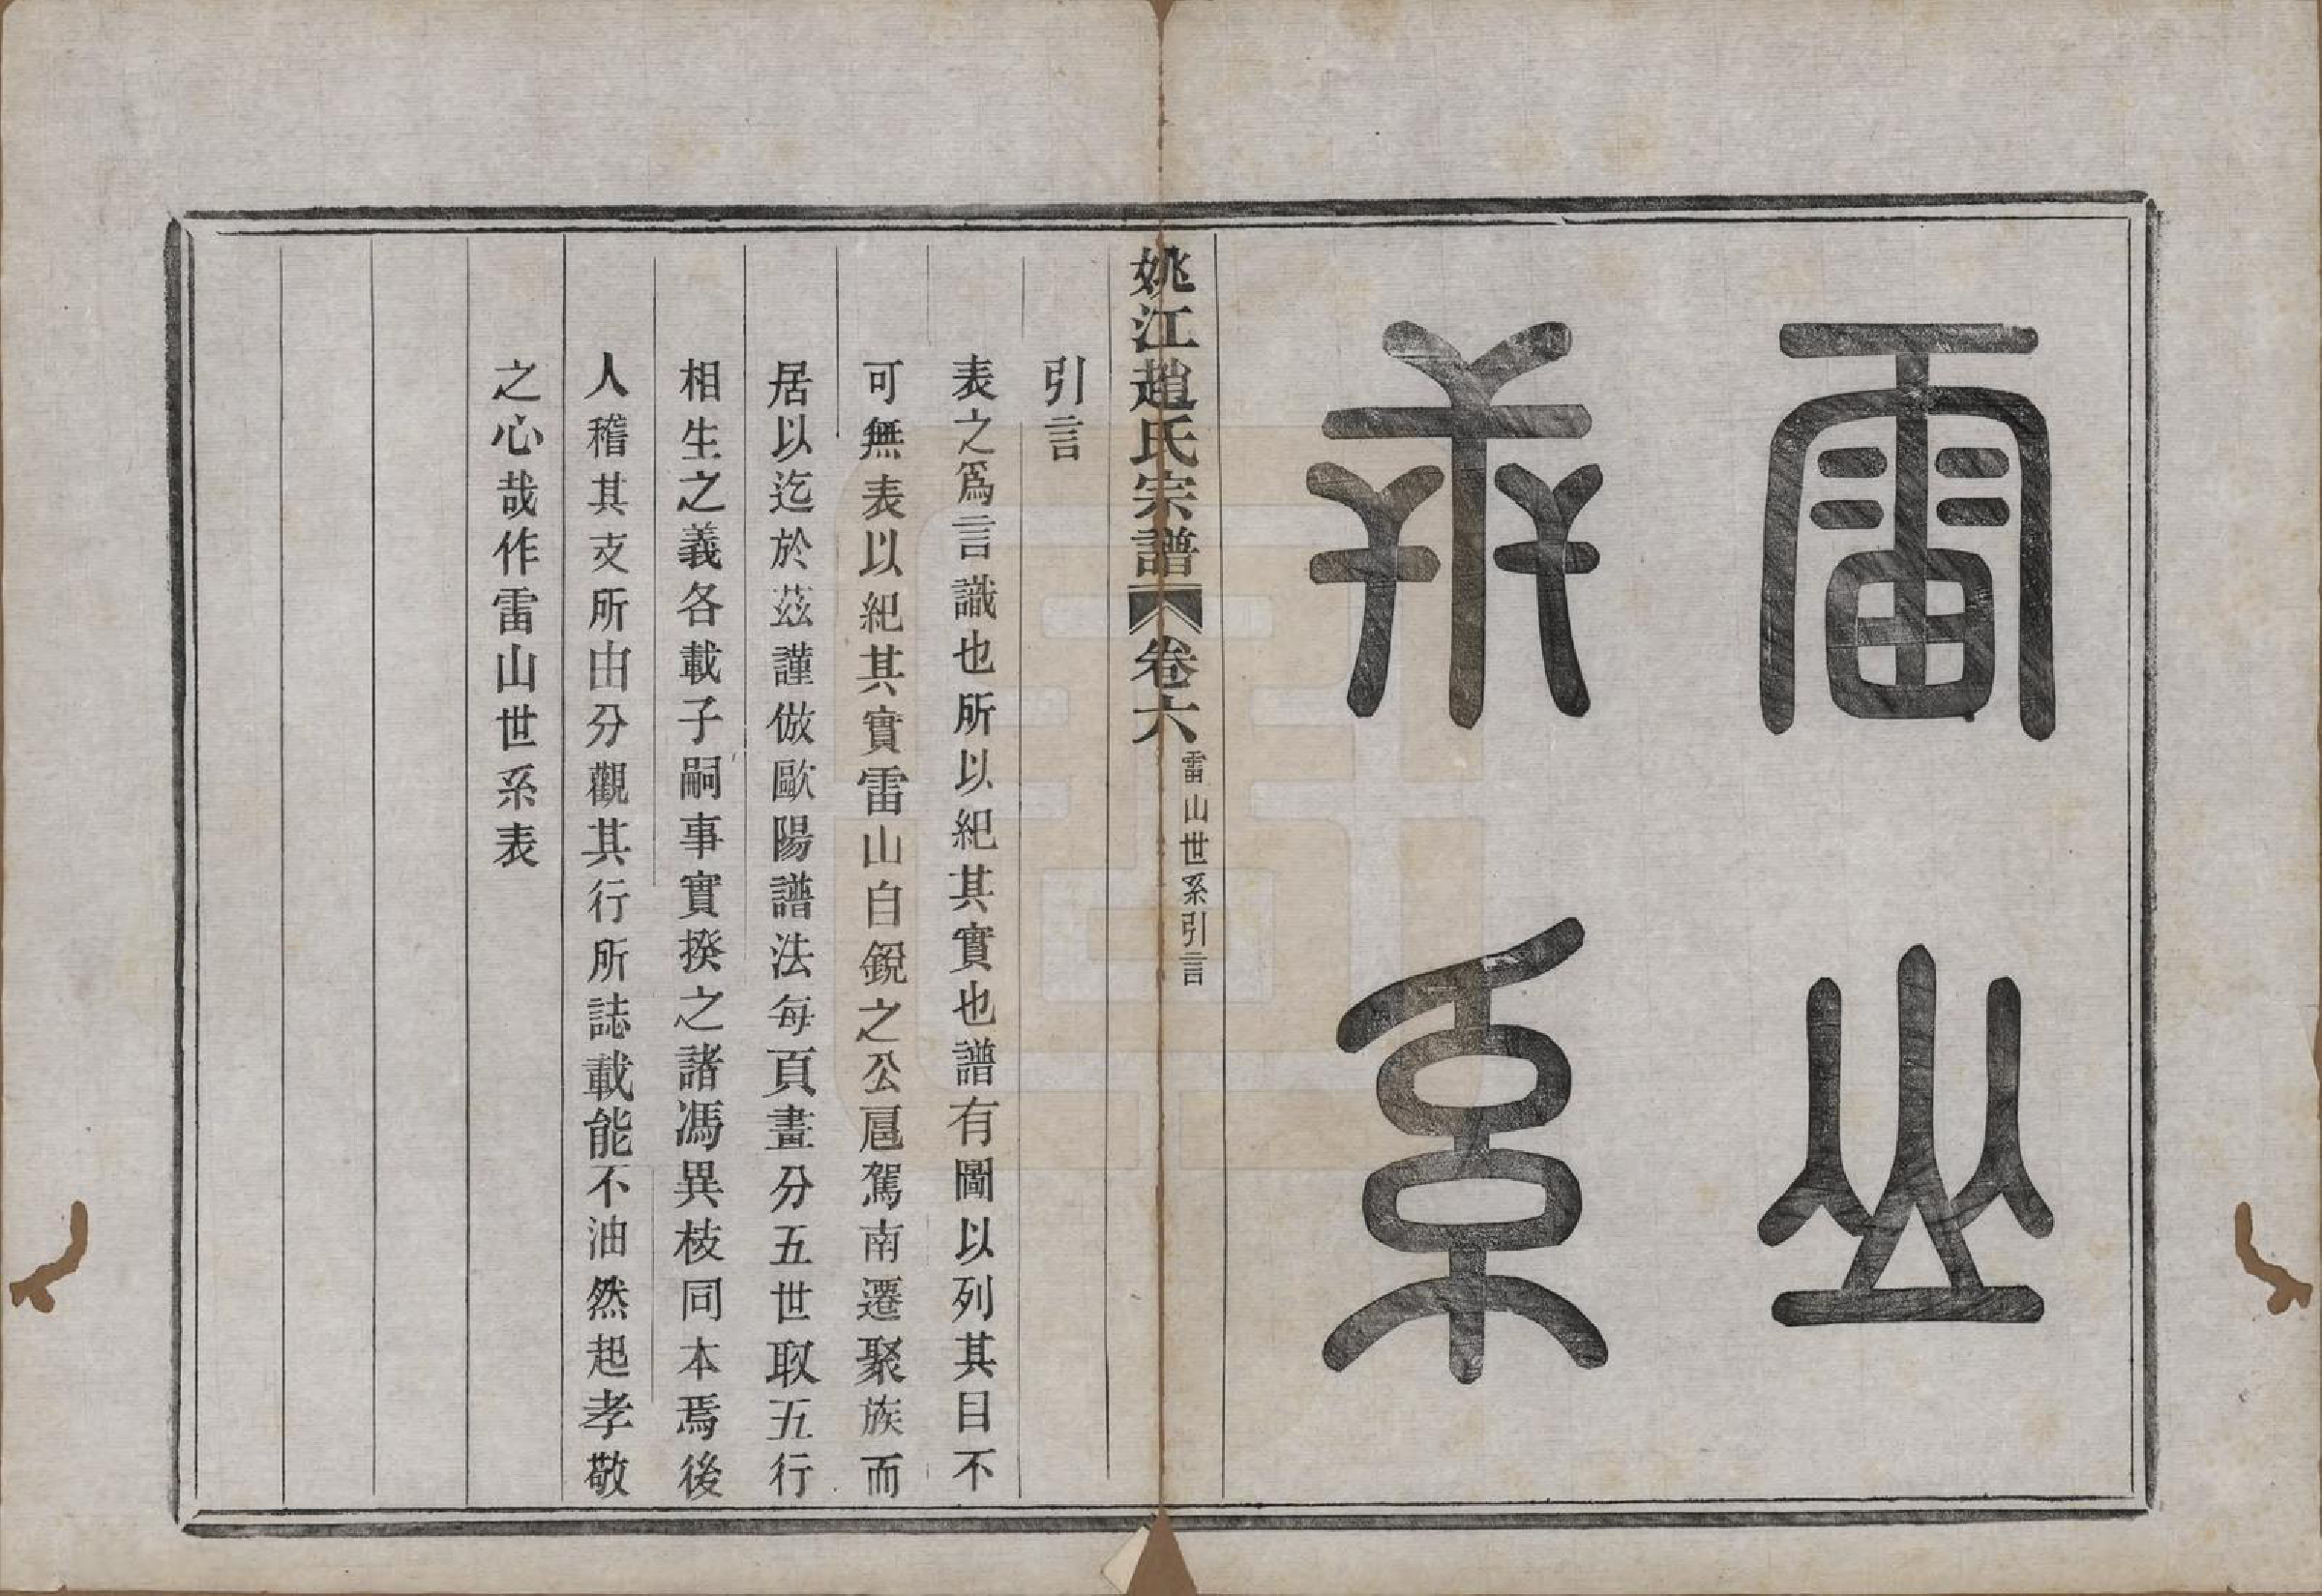 雷山
世系
姚江趙氏宗譜 卷六 雷山世系引言
引言
表之爲言識也所以紀其實也譜有圖以列其目不
可無表以紀其實雷山自銳之公扈駕南遷聚族而
居以迄於茲謹倣歐陽譜法每頁畫分五世取五行
相生之義各載子嗣事實揆之諸馮異枝同本焉後
人稽其支所由分觀其行所誌載能不油然起孝敬
之心哉作雷山世系表